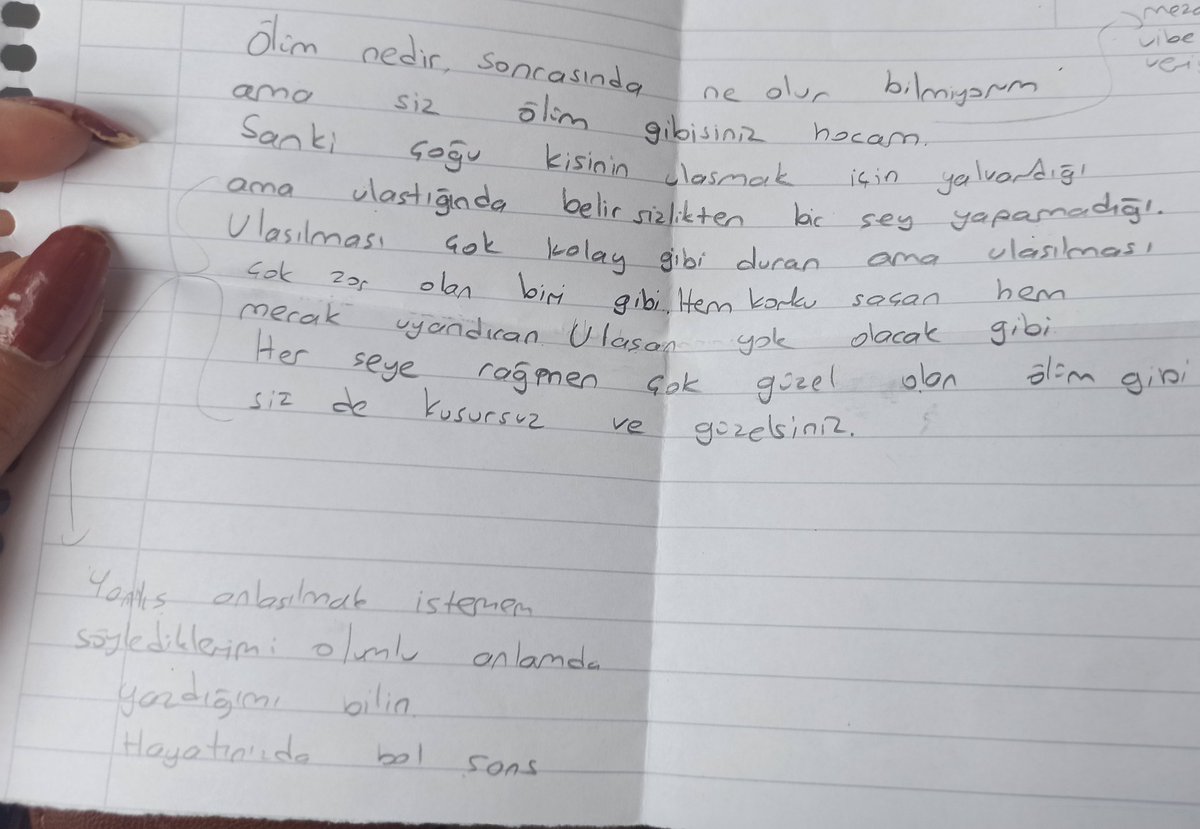 Ölüm nedir, sonrasında ne olur bilmiyorum
ama siz ölüm gibisiniz hocam.
Sanki çoğu kisinin ulasmak için yalvardığı
ama ulastığında belirsizlikten bir sey yapamadığı.
Ulasılması çok kolay gibi duran ama ulasılması
çok zor olan biri gibi. Hem korku saçan hem
merak uyandıran Ulasan yok olacak gibi
Her seye rağmen çok güzel olan ölüm gibi
siz de kusursuz ve güzelsiniz.
vibe
Yanlıs anlasılmak istemem
söylediklerimi olumlu anlamda
yazdığımı bilin
Hayatınızda bol sans